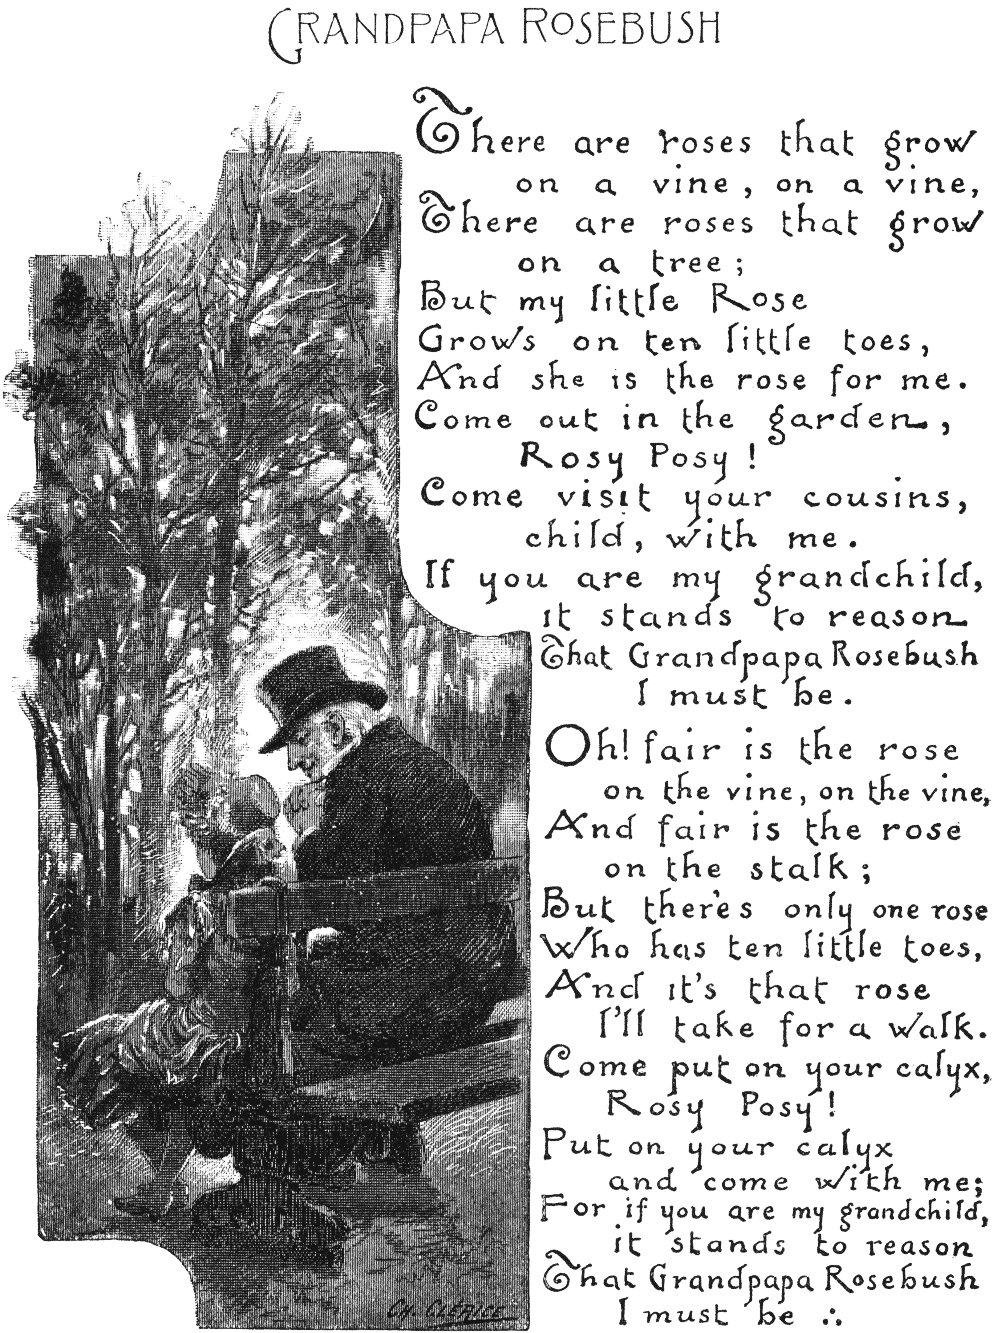 GRANDPAPA ROSEBUSH
There are roses that grow
on a vine, on a vine,
There are roses that grow
on a tree;
But my little Rose
Grows on ten little toes,
And she is the rose for me.
Come out in the garden,
Rosy Posy!
Come visit your cousins,
child, with me.
If you are my grandchild,
it stands to reason
That Grandpapa Rosebush
I must be.
Oh! fair is the rose
on the vine, on the vine,
And fair is the rose
on the stalk;
But there's only one rose
Who has ten little toes,
And it's that rose
I'll take for a walk.
Come put on your calyx,
Rosy Posy!
Put on your calyx
and come with me;
For if you are my grandchild,
it stands to reason
That Grandpapa Rosebush
I must be ∴
CH. CLÉRICE